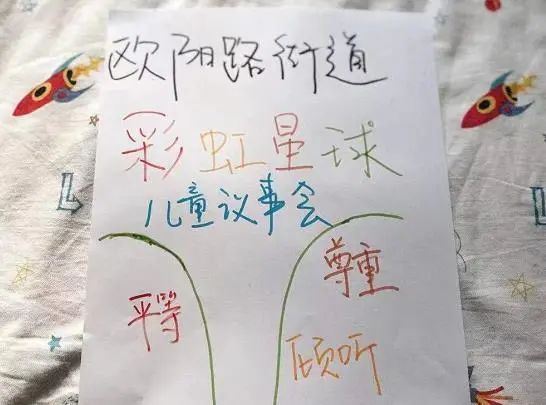 欧阳路街道
彩虹星球
儿童议事会
尊重
平等
倾听